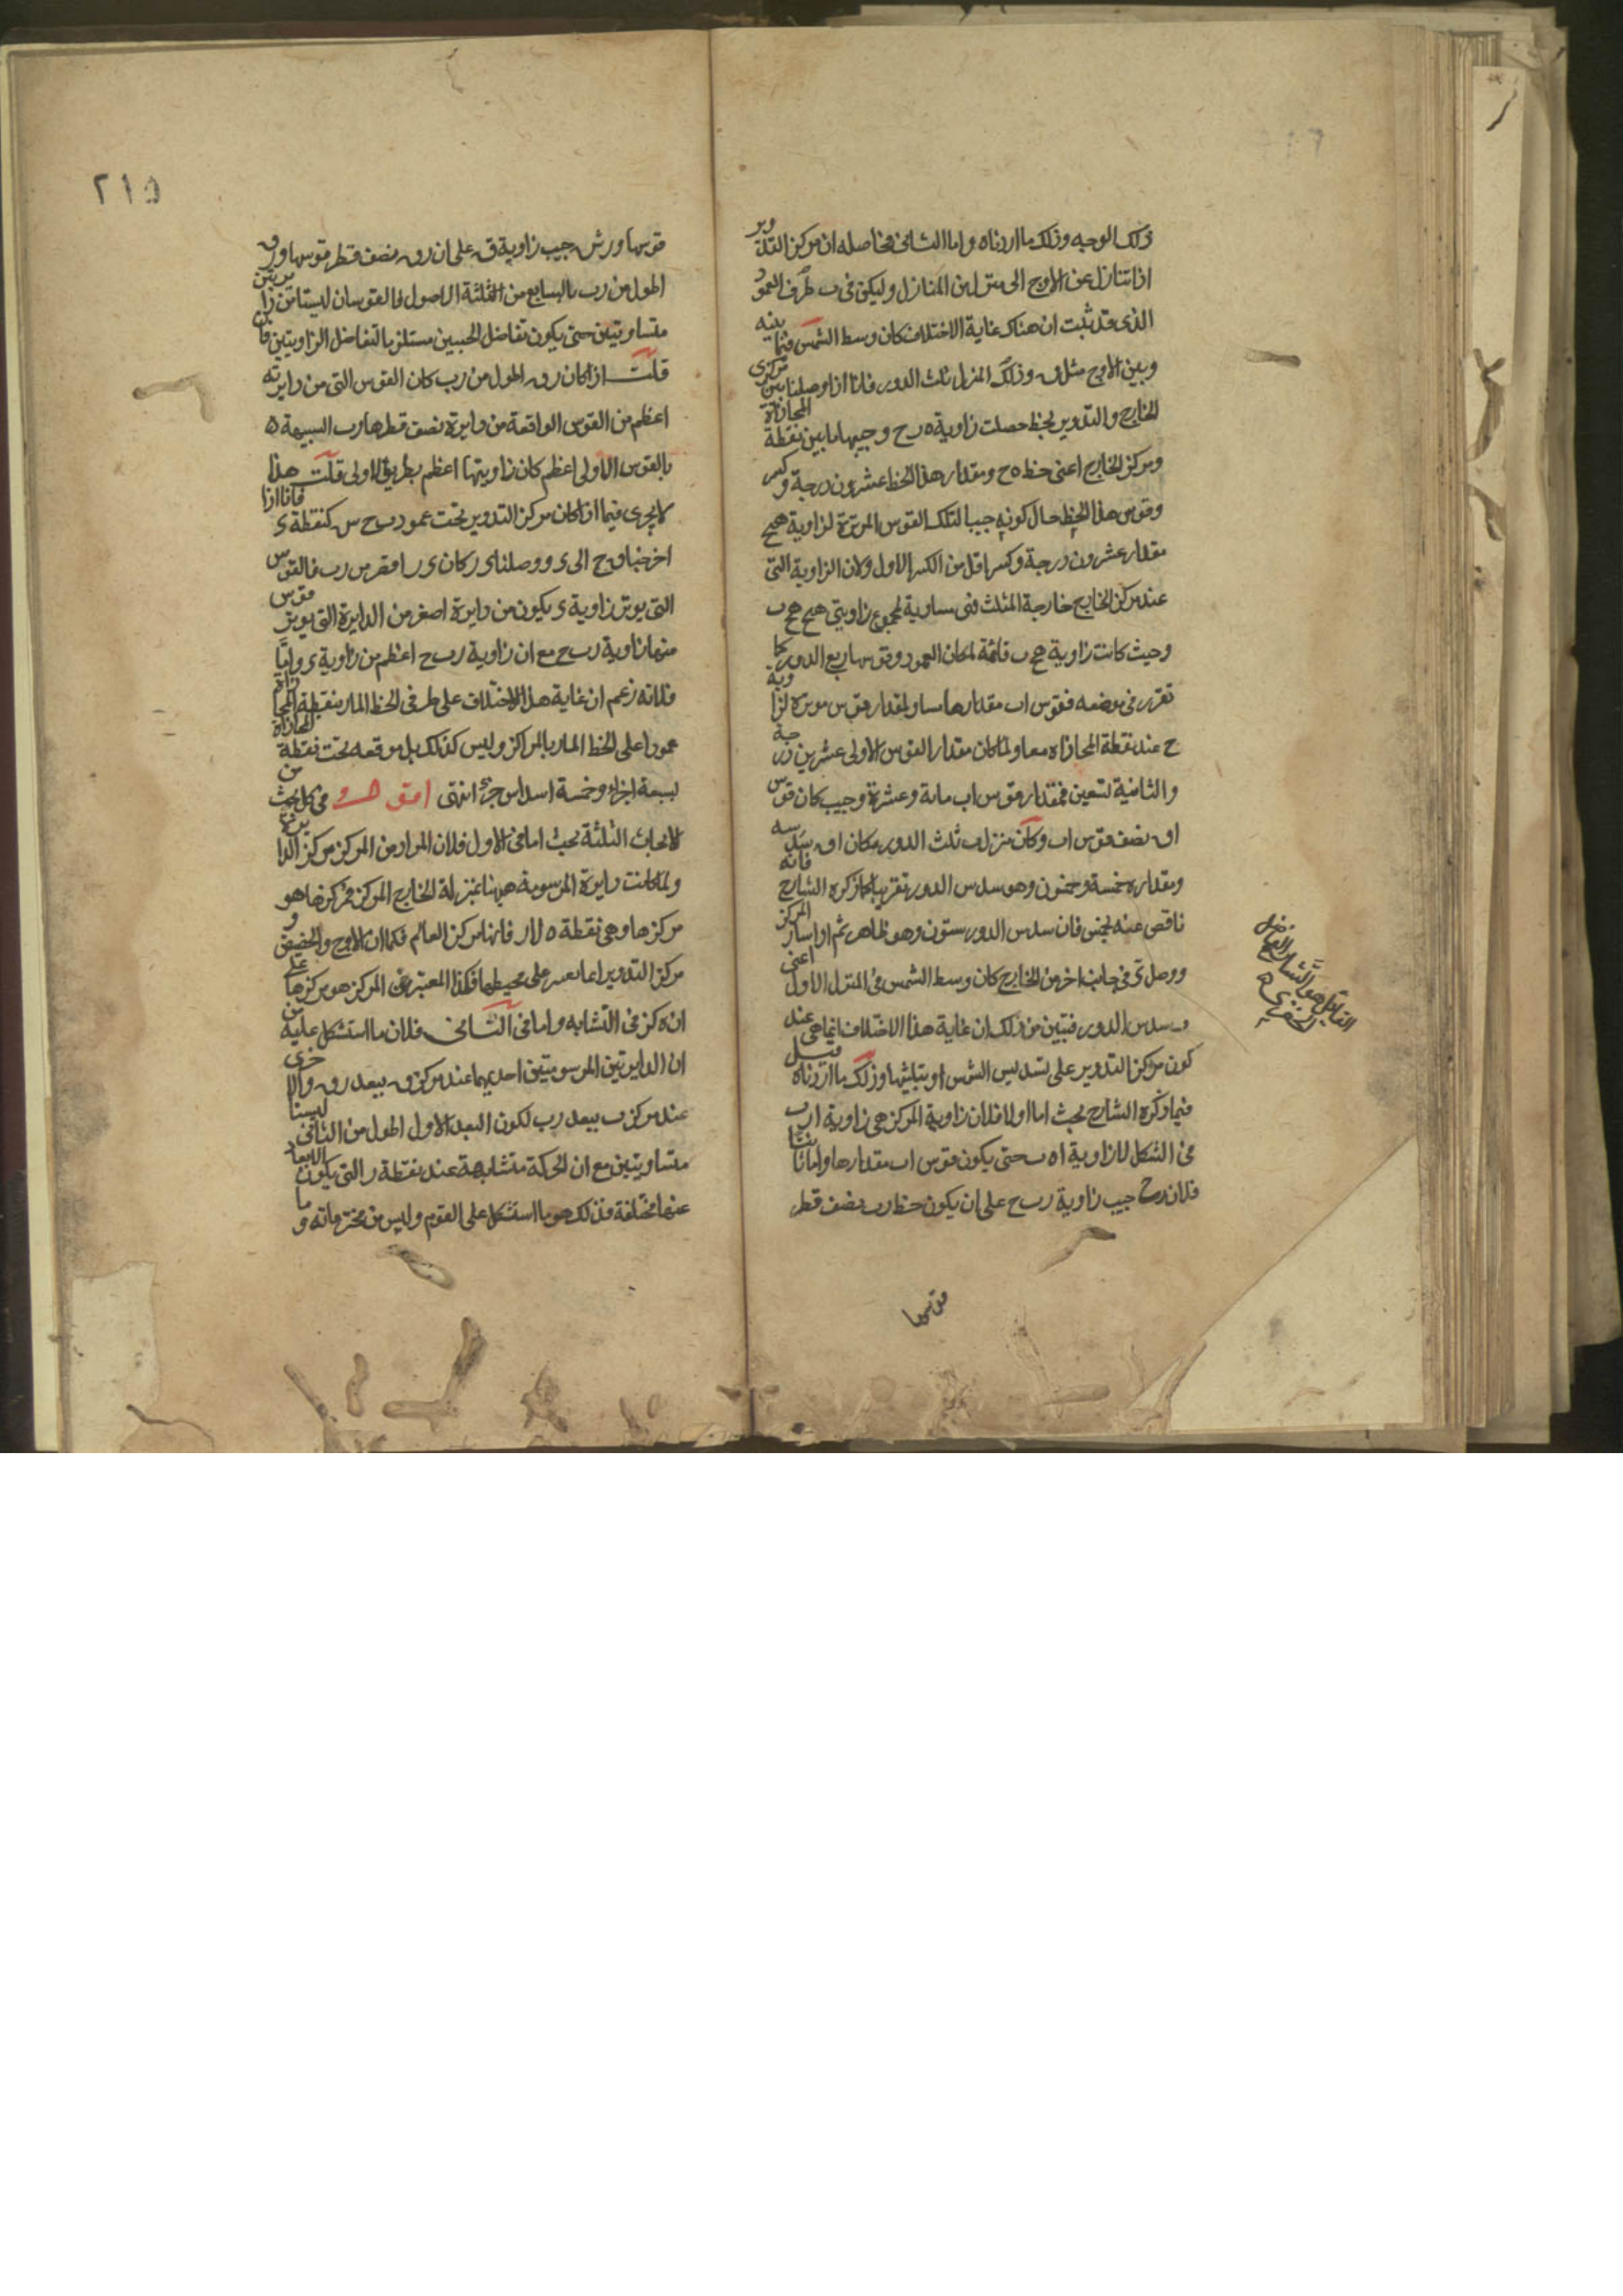 ذلك الوجه وذلك ما اردناه واما الثاني فحاصله ان مركز التدوير
اذا تنازل عن الاوج الى منزل من المنازل وليكن في ب طرف العمود
الذي قد ثبت ان هناك غاية الاختلاف كان وسط الشمس فيما بينه
وبين الاوج مثل ق وذلك المنزل ثلث الدور فانا اذا وصلنا بين مركزى
الخارج والتدوير بخط حصلت زاوية ه ب ح وجيبها ما بين نقطة المحاذاة
ومركز الخارج اعنى خط ه ح ومقدار هذا الخط عشرون درجة وكسر
وقوس هذا الخط حال كونه جيبا لتلك القوس الموترة لزاوية
مقدار عشرون درجة وكسر اقل من الكسر الاول ولان الزاوية التى
عند مركز الخارج خارجة المثلث فهى مساوية لمجموع زاويتى
وحيث كانت زاوية قائمة لمكان العمود وقوسها ربع الدور كما
تقرر فى موضعه فقوس اب مقدارها مساو لمقدار قوس موترة لزاوية
ح عند نقطة المحاذاه معا ولما كان مقدار القوس الاولى عشرين درجة
والثانية تسعين فمقدار قوس اب ماىة وعشرة وجيب كان قوس
اق نصف قوس اب وكان منزل ب ثلث الدور كان اق سدسه
ومقداره خمسة وخمسون وهو سدس الدور تقريبا كما ذكره الشارح فانه
ناقص عنه بخمس فان سدس الدور ستون وهو ظاهر ثم اذا سار المركز
ووصل فى جانب اخر من الخارج كان وسط الشمس فى المنزل الاول اعنى
سدس الدور فتبين من ذلك ان غاية هذا الاختلاف انما هى عند
كون مركز التدوير على تسديس الشمس او تثليثها وذلك ما اردناه قيل
فيما ذكره الشارح بحث اما اولا فلان زاوية المركز هى زاوية ا ر ب
فى الشكل لا زاوية ا ه ب حتى يكون قوس اب مقدارها واما ثانيا
فلان ر ح جيب زاوية ر ب ح على ان يكون خط رب نصف قطر
قوسها
القايل هو الشارح الفاضل
الخفرى
٢١٥
قوسها ورش جيب زاوية ق على ان رق نصف قطر قوسها ورق
اطول من رب بالسابع من الثلثة الاصول فالقوسان ليستا من دائرتين
متساويتين حتى يكون تفاضل الجيبين مستلزما لتفاضل الزاويتين فان
قلت اذا كان رق اطول من رب كان القوس التى من دايرته
اعظم من القوس الواقعة من دايرة نصف قطرها رب الشبيهة
بالقوس الاولى اعظم كان زاويتها اعظم بطريق الاولى قلت هذا
لا يجرى فيما اذا كان مركز التدوير تحت عمود ب ح س كنقطة ى فانا اذا
اخرجنا ق ح الى ى ووصلنا ى ر كان ى ر اقصر من رب فالقوس
التى يوتر زاوية ى يكون من دايرة اصغر من الدايرة التى يوتر قوس
منها زاوية رب ح مع ان زاوية رب ح اعظم من زاوية ى واما ثالثا
فلانه زعم ان غاية هذا الاختلاف على طرفى الخط المار بنقطة المحاذاه
عمودا على الخط المار بالمراكز وليس كذلك بل موقعه تحت نقطة المحاذاة
بسبعة اجزاء وخمسة اسداس جزء انتهى اقول وفى كل بحث من
الابحاث الثلثة بحث اما فى الاول فلان المراد من المركز مركز الدايرة
ولما كانت دايرة المرسومة ههنا بمنزلة الخارج المركز فمركزها هو
مركزها وهى نقطة ه لا ر فانها مركز العالم فكما ان الاوج والحضيض و
مركز التدوير انما تعتبر على محيطها فكذا المعتبر فى المركز هو مركزها على
ان ه كز فى التشابه واما فى الثانى فلان ما استشكل عليه من
ان الدايرتين المرسومتين احديهما عند مركز ق ببعد رق والاخرى
عند مركز ب ببعد رب لكون البعد الاول اطول من الثانى ليستا
متساويتين مع ان الحركة متشابهة عند نقطة ر التى يكون الابعاد
عنها مختلفة فذلك هو ما استشكل على القوم وليس من مخترعاته وما